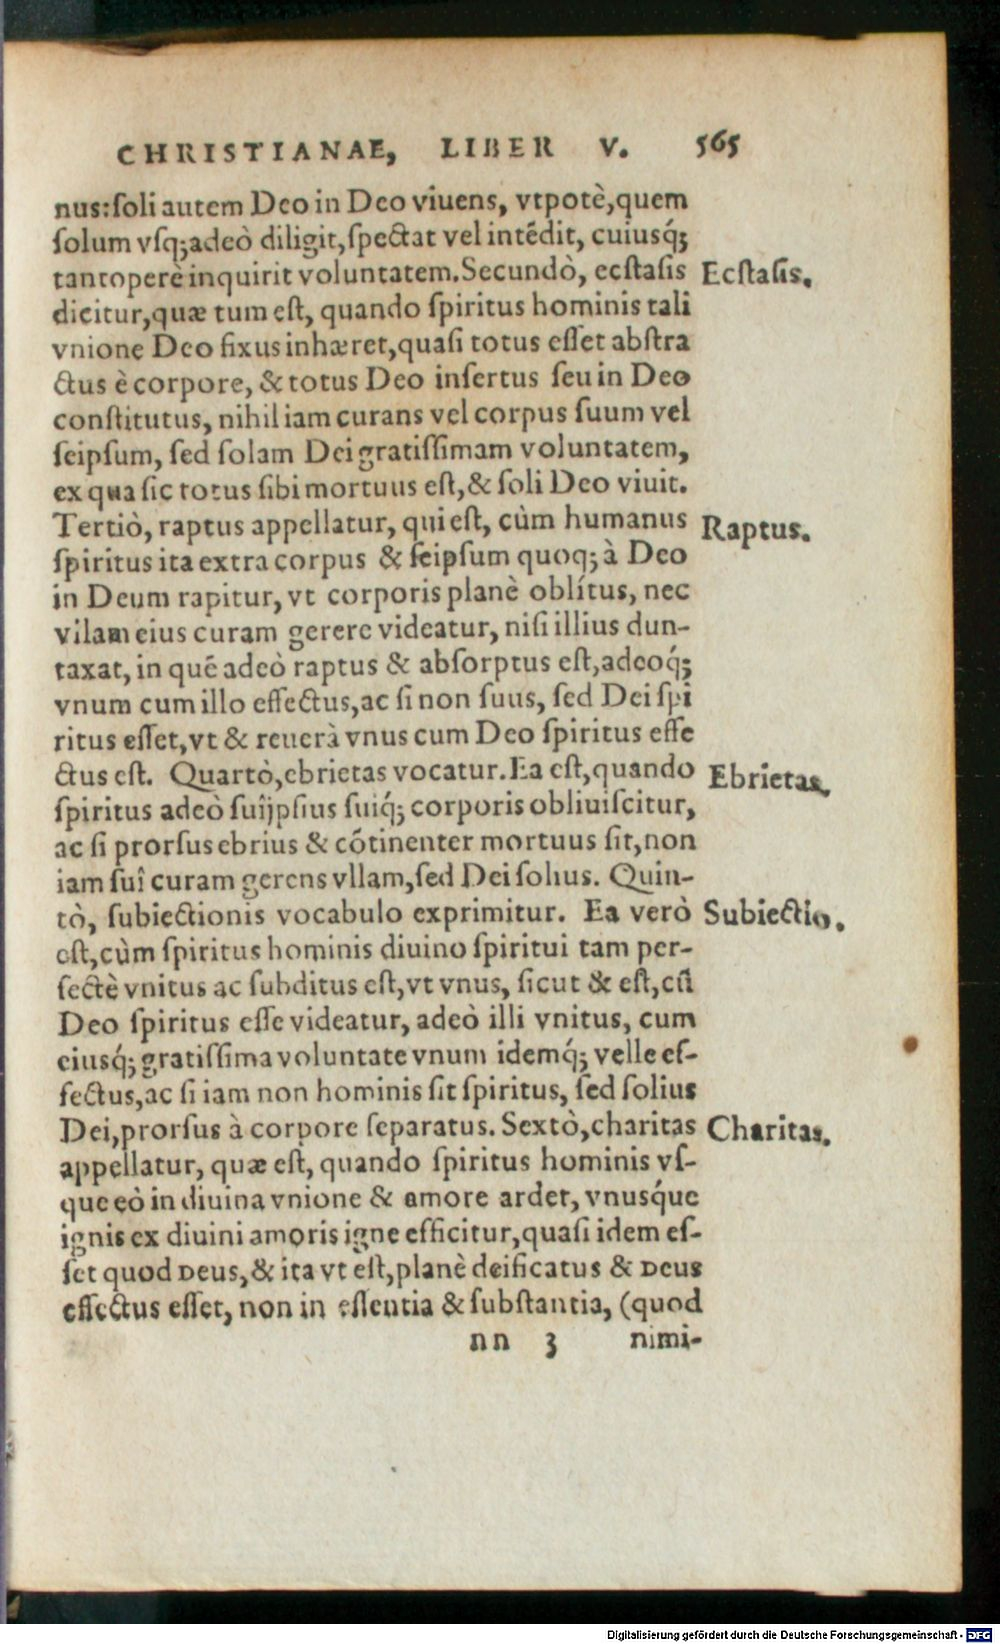 CHRISTIANAE, LIBER V. 565
nus: ſoli autem Deo in Deo viuens, vtpotè, quem
ſolum vſq; adeò diligit, ſpectat vel intẽdit, cuiusq́;
tantoperè inquirit voluntatem. Secundò, ecſtaſis
Ecſtaſis.
dicitur, quæ tum eſt, quando ſpiritus hominis tali
vnione Deo fixus inhæret, quaſi totus eſſet abſtra
ctus è corpore, & totus Deo inſertus ſeu in Deo
conſtitutus, nihil iam curans vel corpus ſuum vel
ſeipſum, ſed ſolam Dei gratiſſimam voluntatem,
ex qua ſic totus ſibi mortuus eſt, & ſoli Deo viuit.
Tertiò, raptus appellatur, qui eſt, cùm humanus
Raptus.
ſpiritus ita extra corpus & ſeipſum quoq; à Deo
in Deum rapitur, vt corporis planè oblítus, nec
vllam eius curam gerere videatur, niſi illius dun-
taxat, in quẽ adeò raptus & abſorptus eſt, adeoq́;
vnum cum illo effectus, ac ſi non ſuus, ſed Dei ſpi
ritus eſſet, vt & reuerà vnus cum Deo ſpiritus effe
ctus eſt. Quartò, ebrietas vocatur. Ea eſt, quando
Ebrietas.
ſpiritus adeò ſuîjpſius ſuiq́; corporis obliuiſcitur,
ac ſi prorſus ebrius & cõtinenter mortuus ſit, non
iam ſuî curam gerens vllam, ſed Dei ſolius. Quin-
tò, ſubiectionis vocabulo exprimitur. Ea verò
Subiectio.
eſt, cùm ſpiritus hominis diuino ſpiritui tam per-
fectè vnitus ac ſubditus eſt, vt vnus, ſicut & eſt, cũ
Deo ſpiritus eſſe videatur, adeò illi vnitus, cum
eiusq́; gratiſſima voluntate vnum idemq́; velle ef-
fectus, ac ſi iam non hominis ſit ſpiritus, ſed ſolius
Dei, prorſus à corpore ſeparatus. Sextò, charitas
Charitas.
appellatur, quæ eſt, quando ſpiritus hominis vſ-
que eò in diuina vnione & amore ardet, vnusq́ue
ignis ex diuini amoris igne efficitur, quaſi idem eſ-
ſet quod DEUS, & ita vt eſt, planè deificatus & DEUS
effectus eſſet, non in eſſentia & ſubſtantia, (quod
nn 3 nimi-
Digitalisierung gefördert durch die Deutsche Forschungsgemeinschaft - DFG